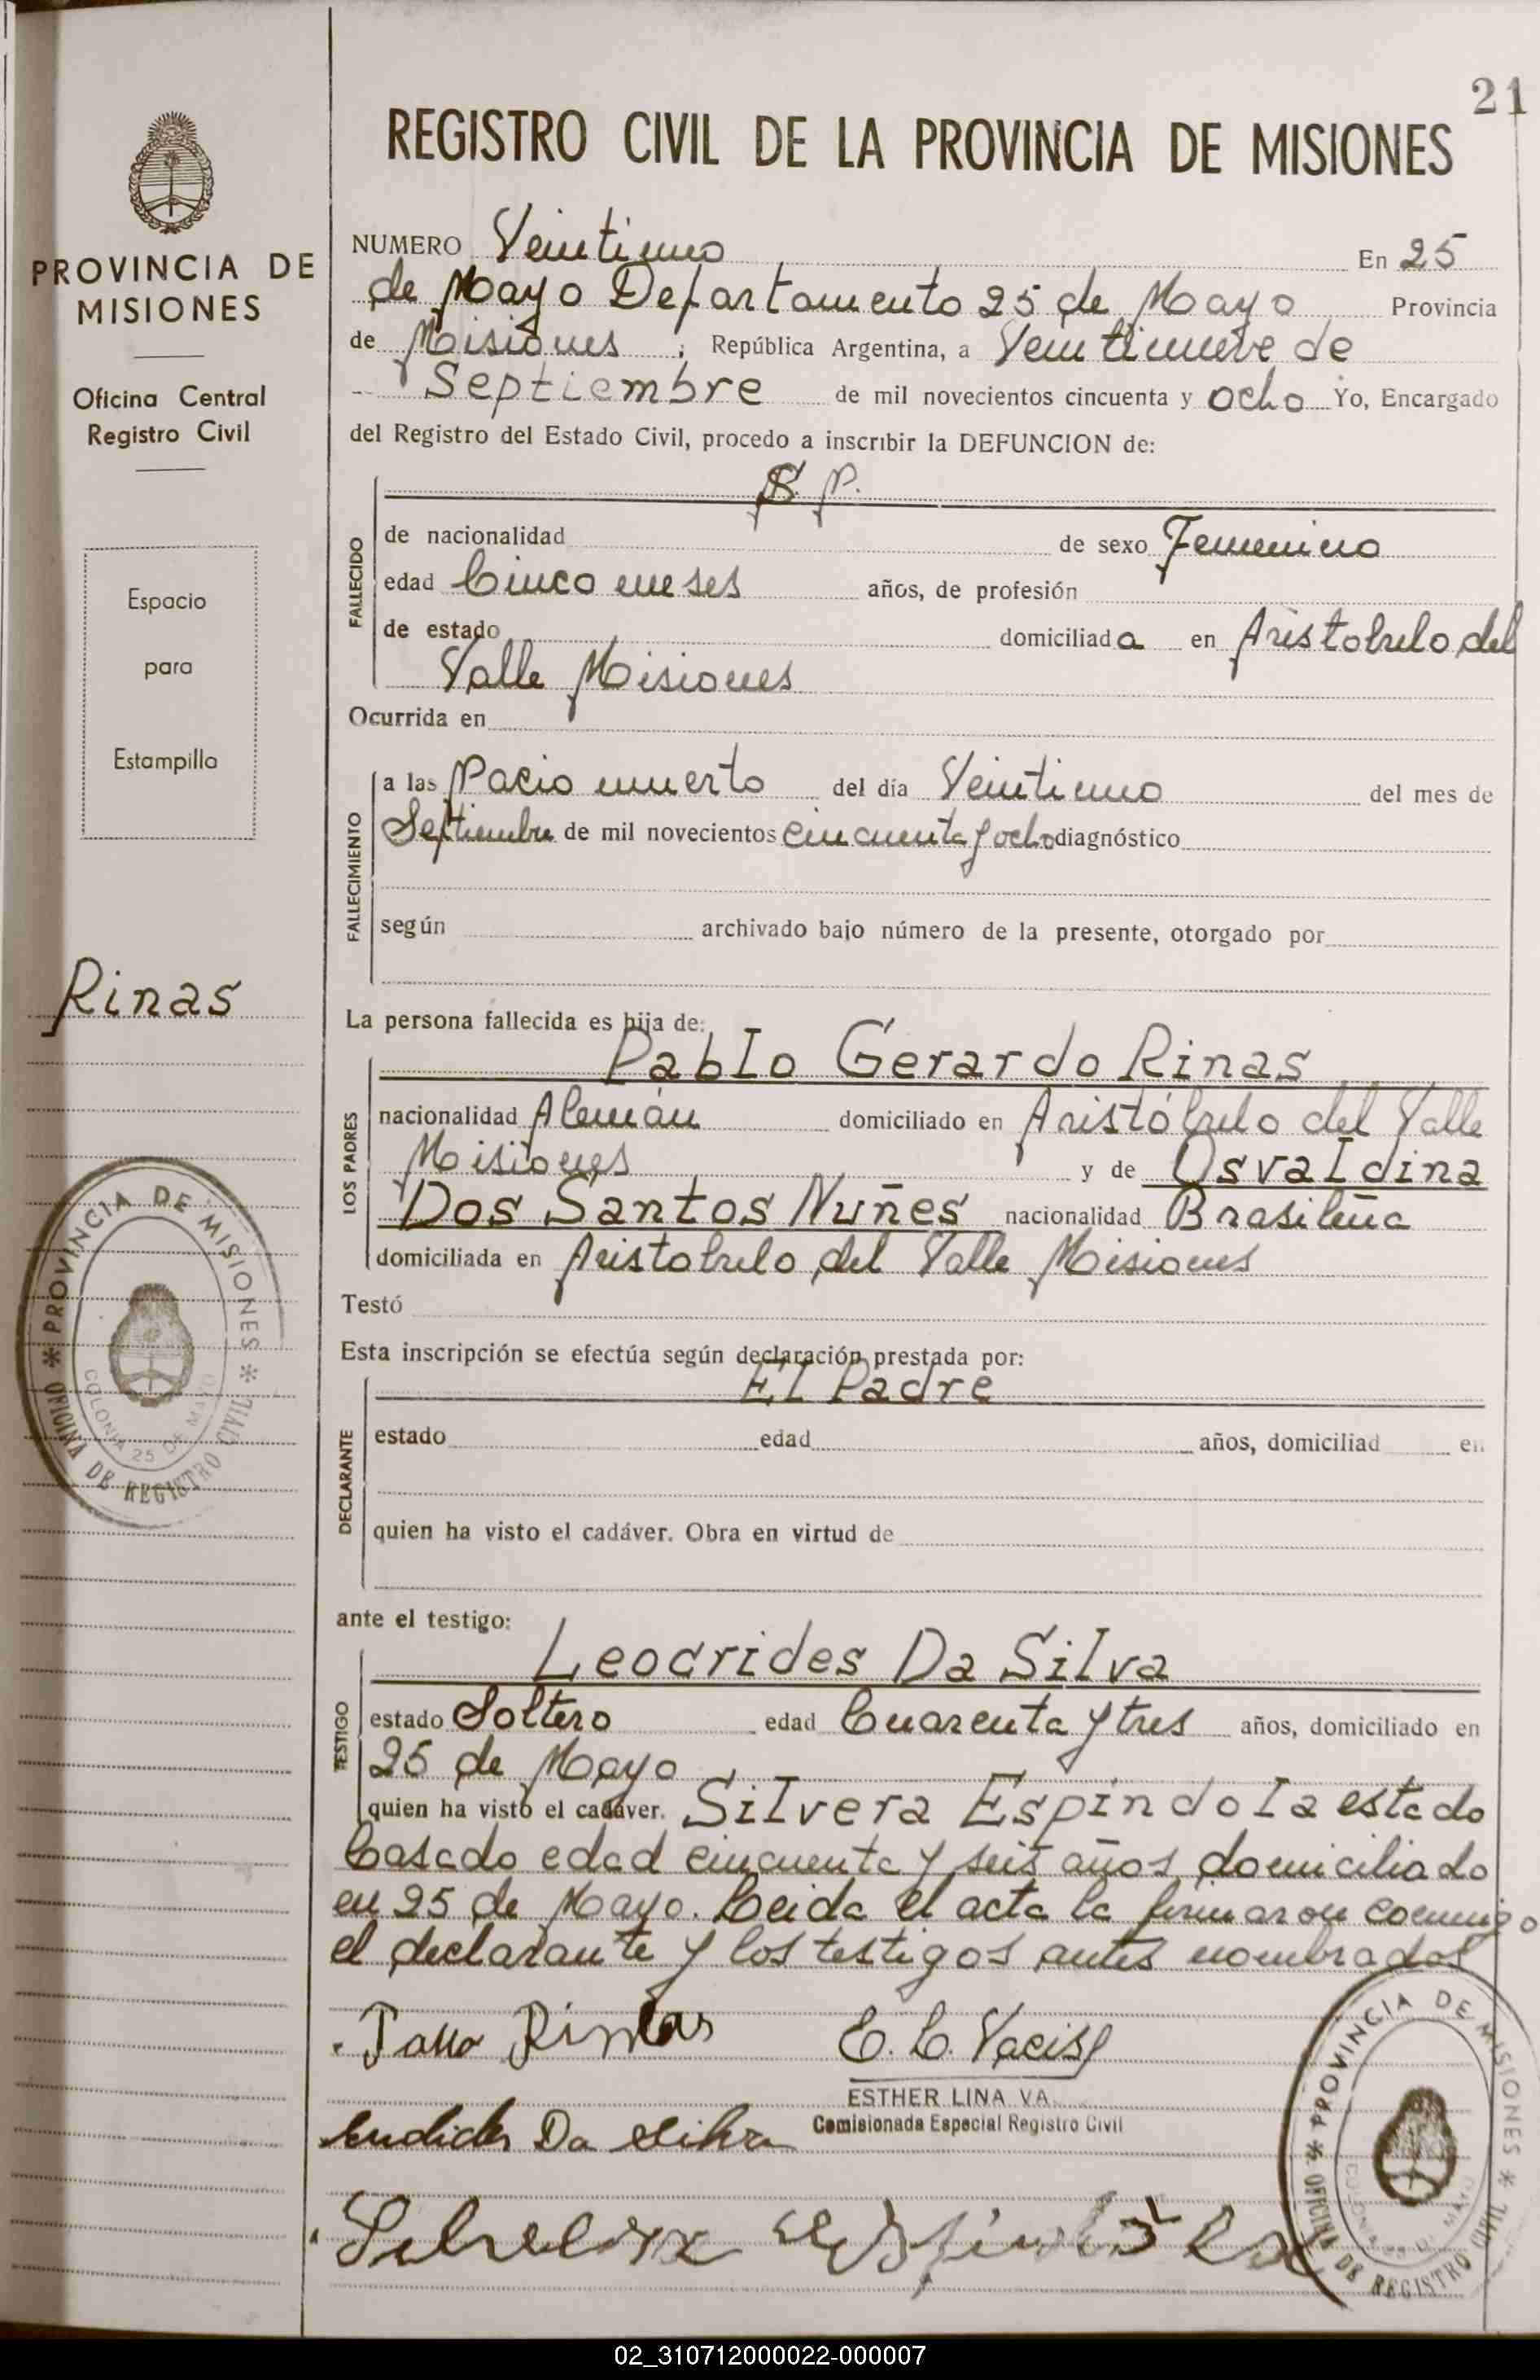 21
REGISTRO CIVIL DE LA PROVINCIA DE MISIONES
PROVINCIA DE
MISIONES
Oficina Central
Registro Civil
Espacio
para
Estampilla
Rinas
NUMERO Veintiuno En 25
de Mayo Departamento 25 de Mayo Provincia
de Misiones ; República Argentina, a Veintinueve de
Septiembre de mil novecientos cincuenta y ocho Yo, Encargado
del Registro del Estado Civil, procedo a inscribir la DEFUNCION de:
FALLECIDO
de nacionalidad de sexo Femenino
edad Cinco meses años, de profesión
de estado domiciliada en Aristobulo del
Valle Misiones
Ocurrida en
FALLECIMIENTO
a las Nacio muerto del día Veintiuno del mes de
Septiembre de mil novecientos cincuenta y ocho diagnóstico
según archivado bajo número de la presente, otorgado por
La persona fallecida es hija de:
LOS PADRES
Pablo Gerardo Rinas
nacionalidad Alemán domiciliado en Aristóbulo del Valle
Misiones y de Osvaldina
Dos Santos Nuñes nacionalidad Brasileña
domiciliada en Aristobulo del Valle Misiones
Testó
Esta inscripción se efectúa según declaración prestada por:
El Padre
DECLARANTE
estado edad años, domiciliad en
quien ha visto el cadáver. Obra en virtud de
ante el testigo:
TESTIGO
Leocrides Da Silva
estado Soltero edad Cuarenta y tres años, domiciliado en
25 de Mayo
quien ha visto el cadáver. Silvera Espindola estado
Casado edad cincuenta y seis años domiciliado
en 25 de Mayo. Leida el acta la firmaron conmigo
el declarante y los testigos antes nombrados
Rinas E. L.
ESTHER LINA VA
Comisionada Especial Registro Civil
Da Silva
PROVINCIA DE MISIONES
OFICINA DE REGISTRO CIVIL
COLONIA 25 DE MAYO
PROVINCIA DE MISIONES
OFICINA DE REGISTRO CIVIL
COLONIA 25 DE MAYO
02_310712000022-000007